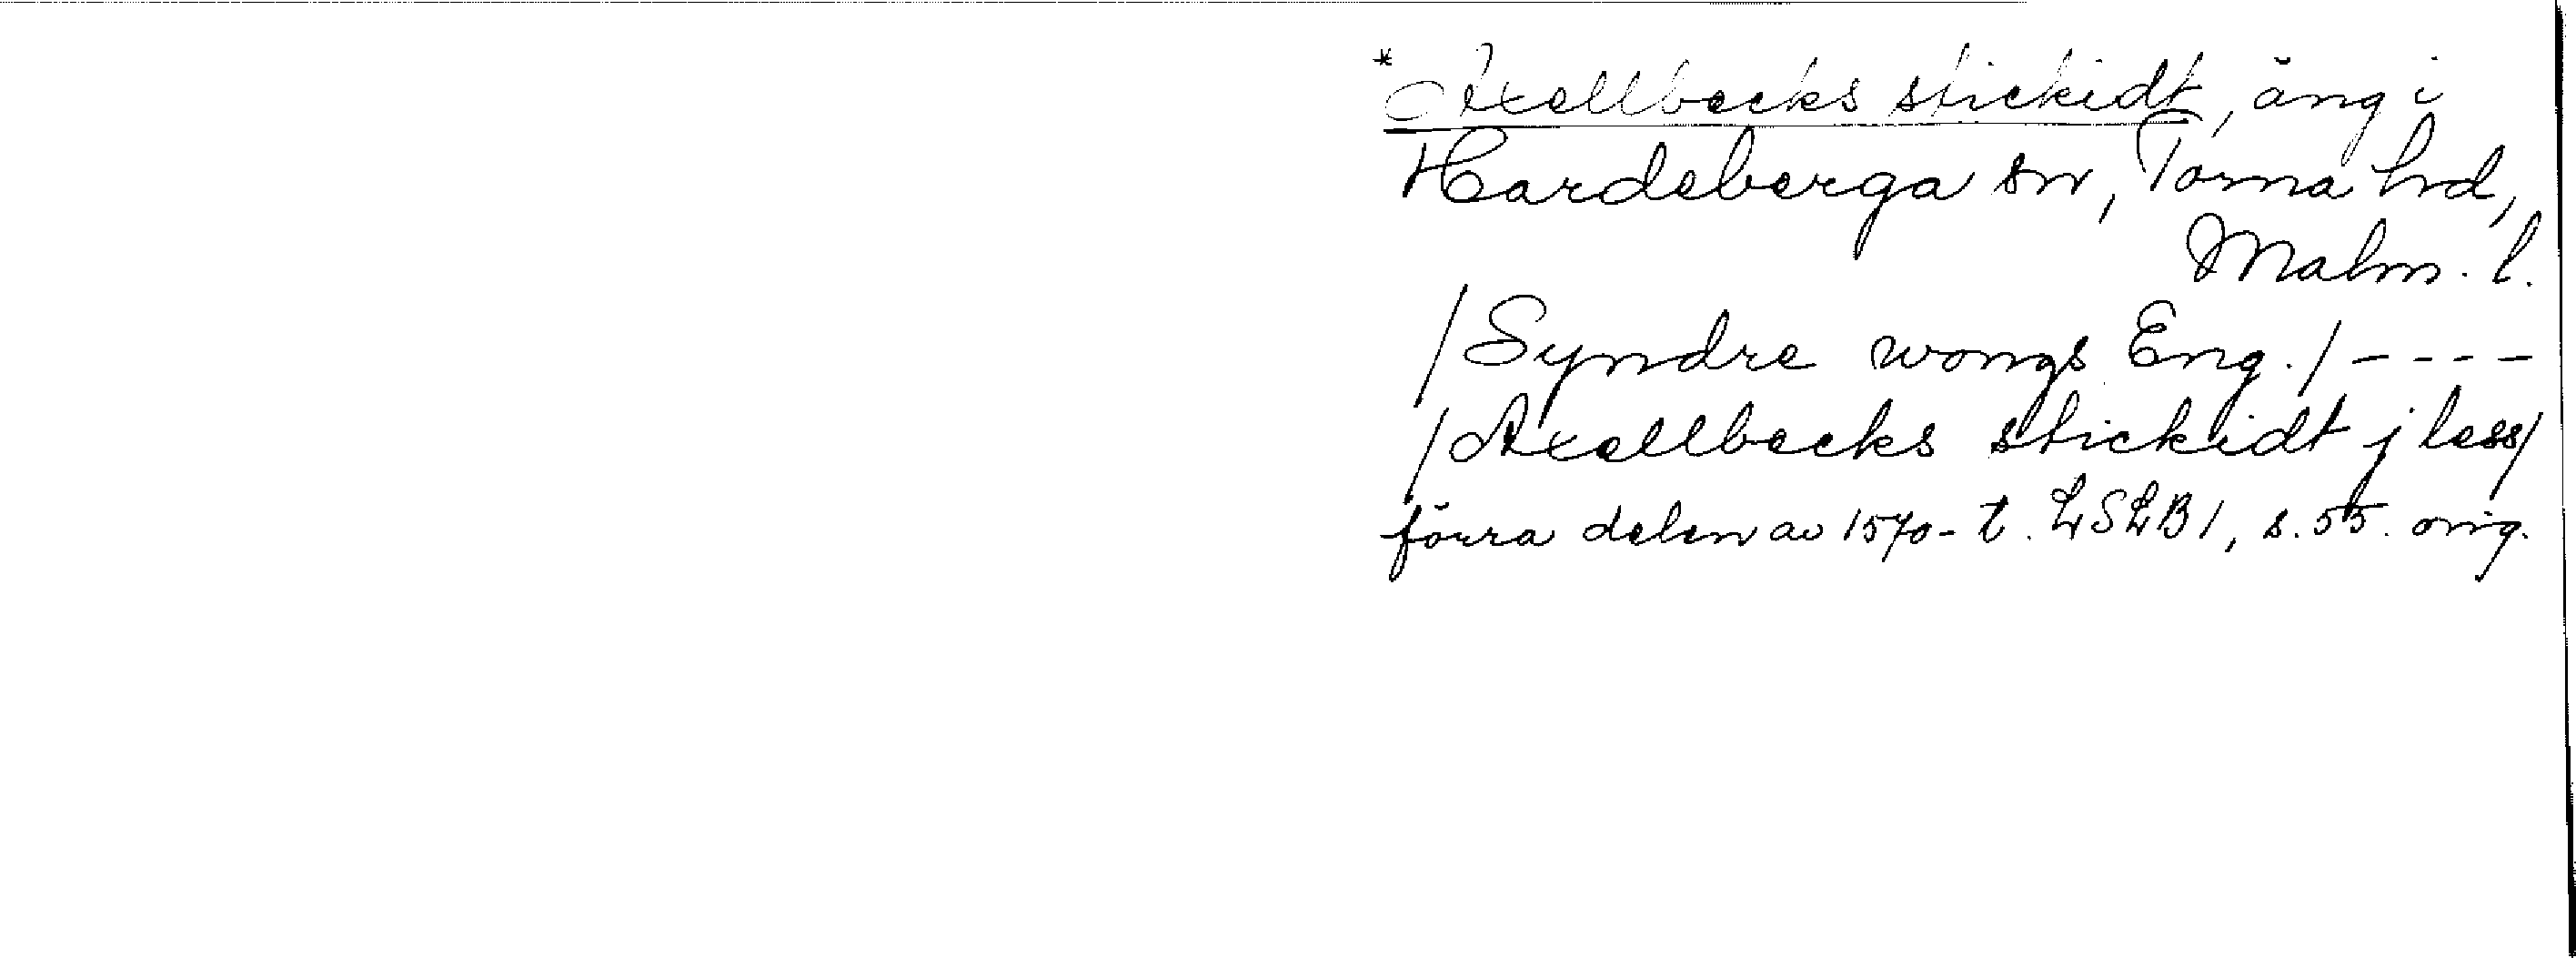 *Axellbecks stickidt, äng i
Hardeberga sn, Torna hrd,
Malm. l.
/Syndre wongs Eng./ - - - -
/Axellbecks stickidt j less/
förra delen av 1570-t. LSLB1, s. 55. orig.